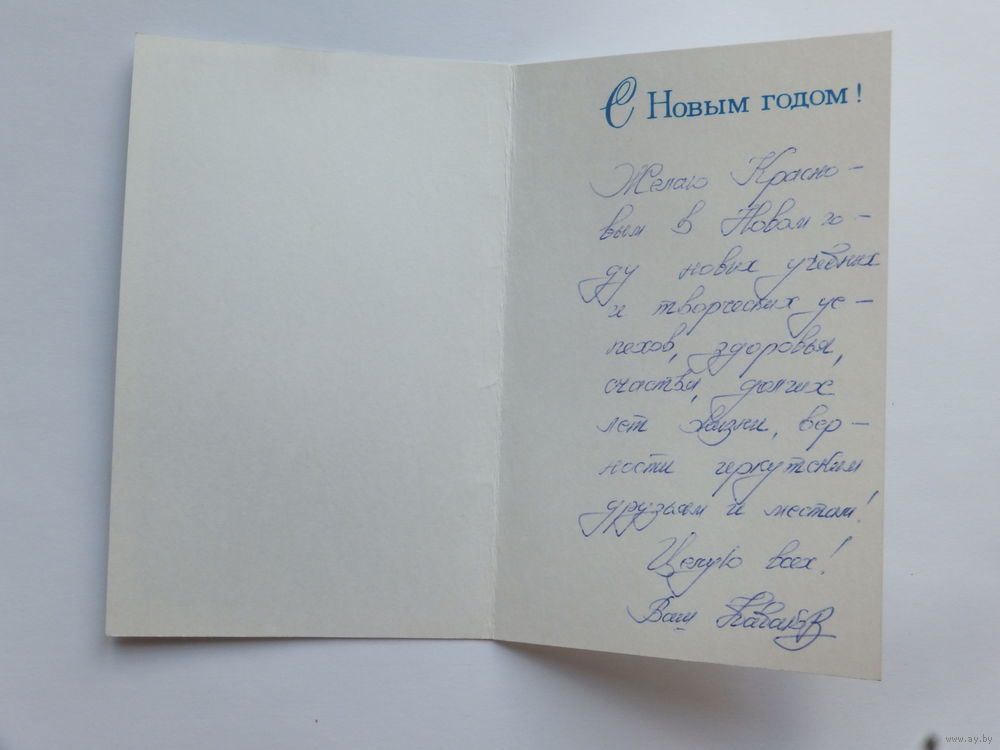 С Новым годом!
Желаю Красно-
вым в Новом го-
ду новых учебных
и творческих ус-
пехов, здоровья,
счастья, долгих
лет жизни, вер-
ности иркутским
друзьям и местам!
Целую всех!
Ваш
www.ay.by